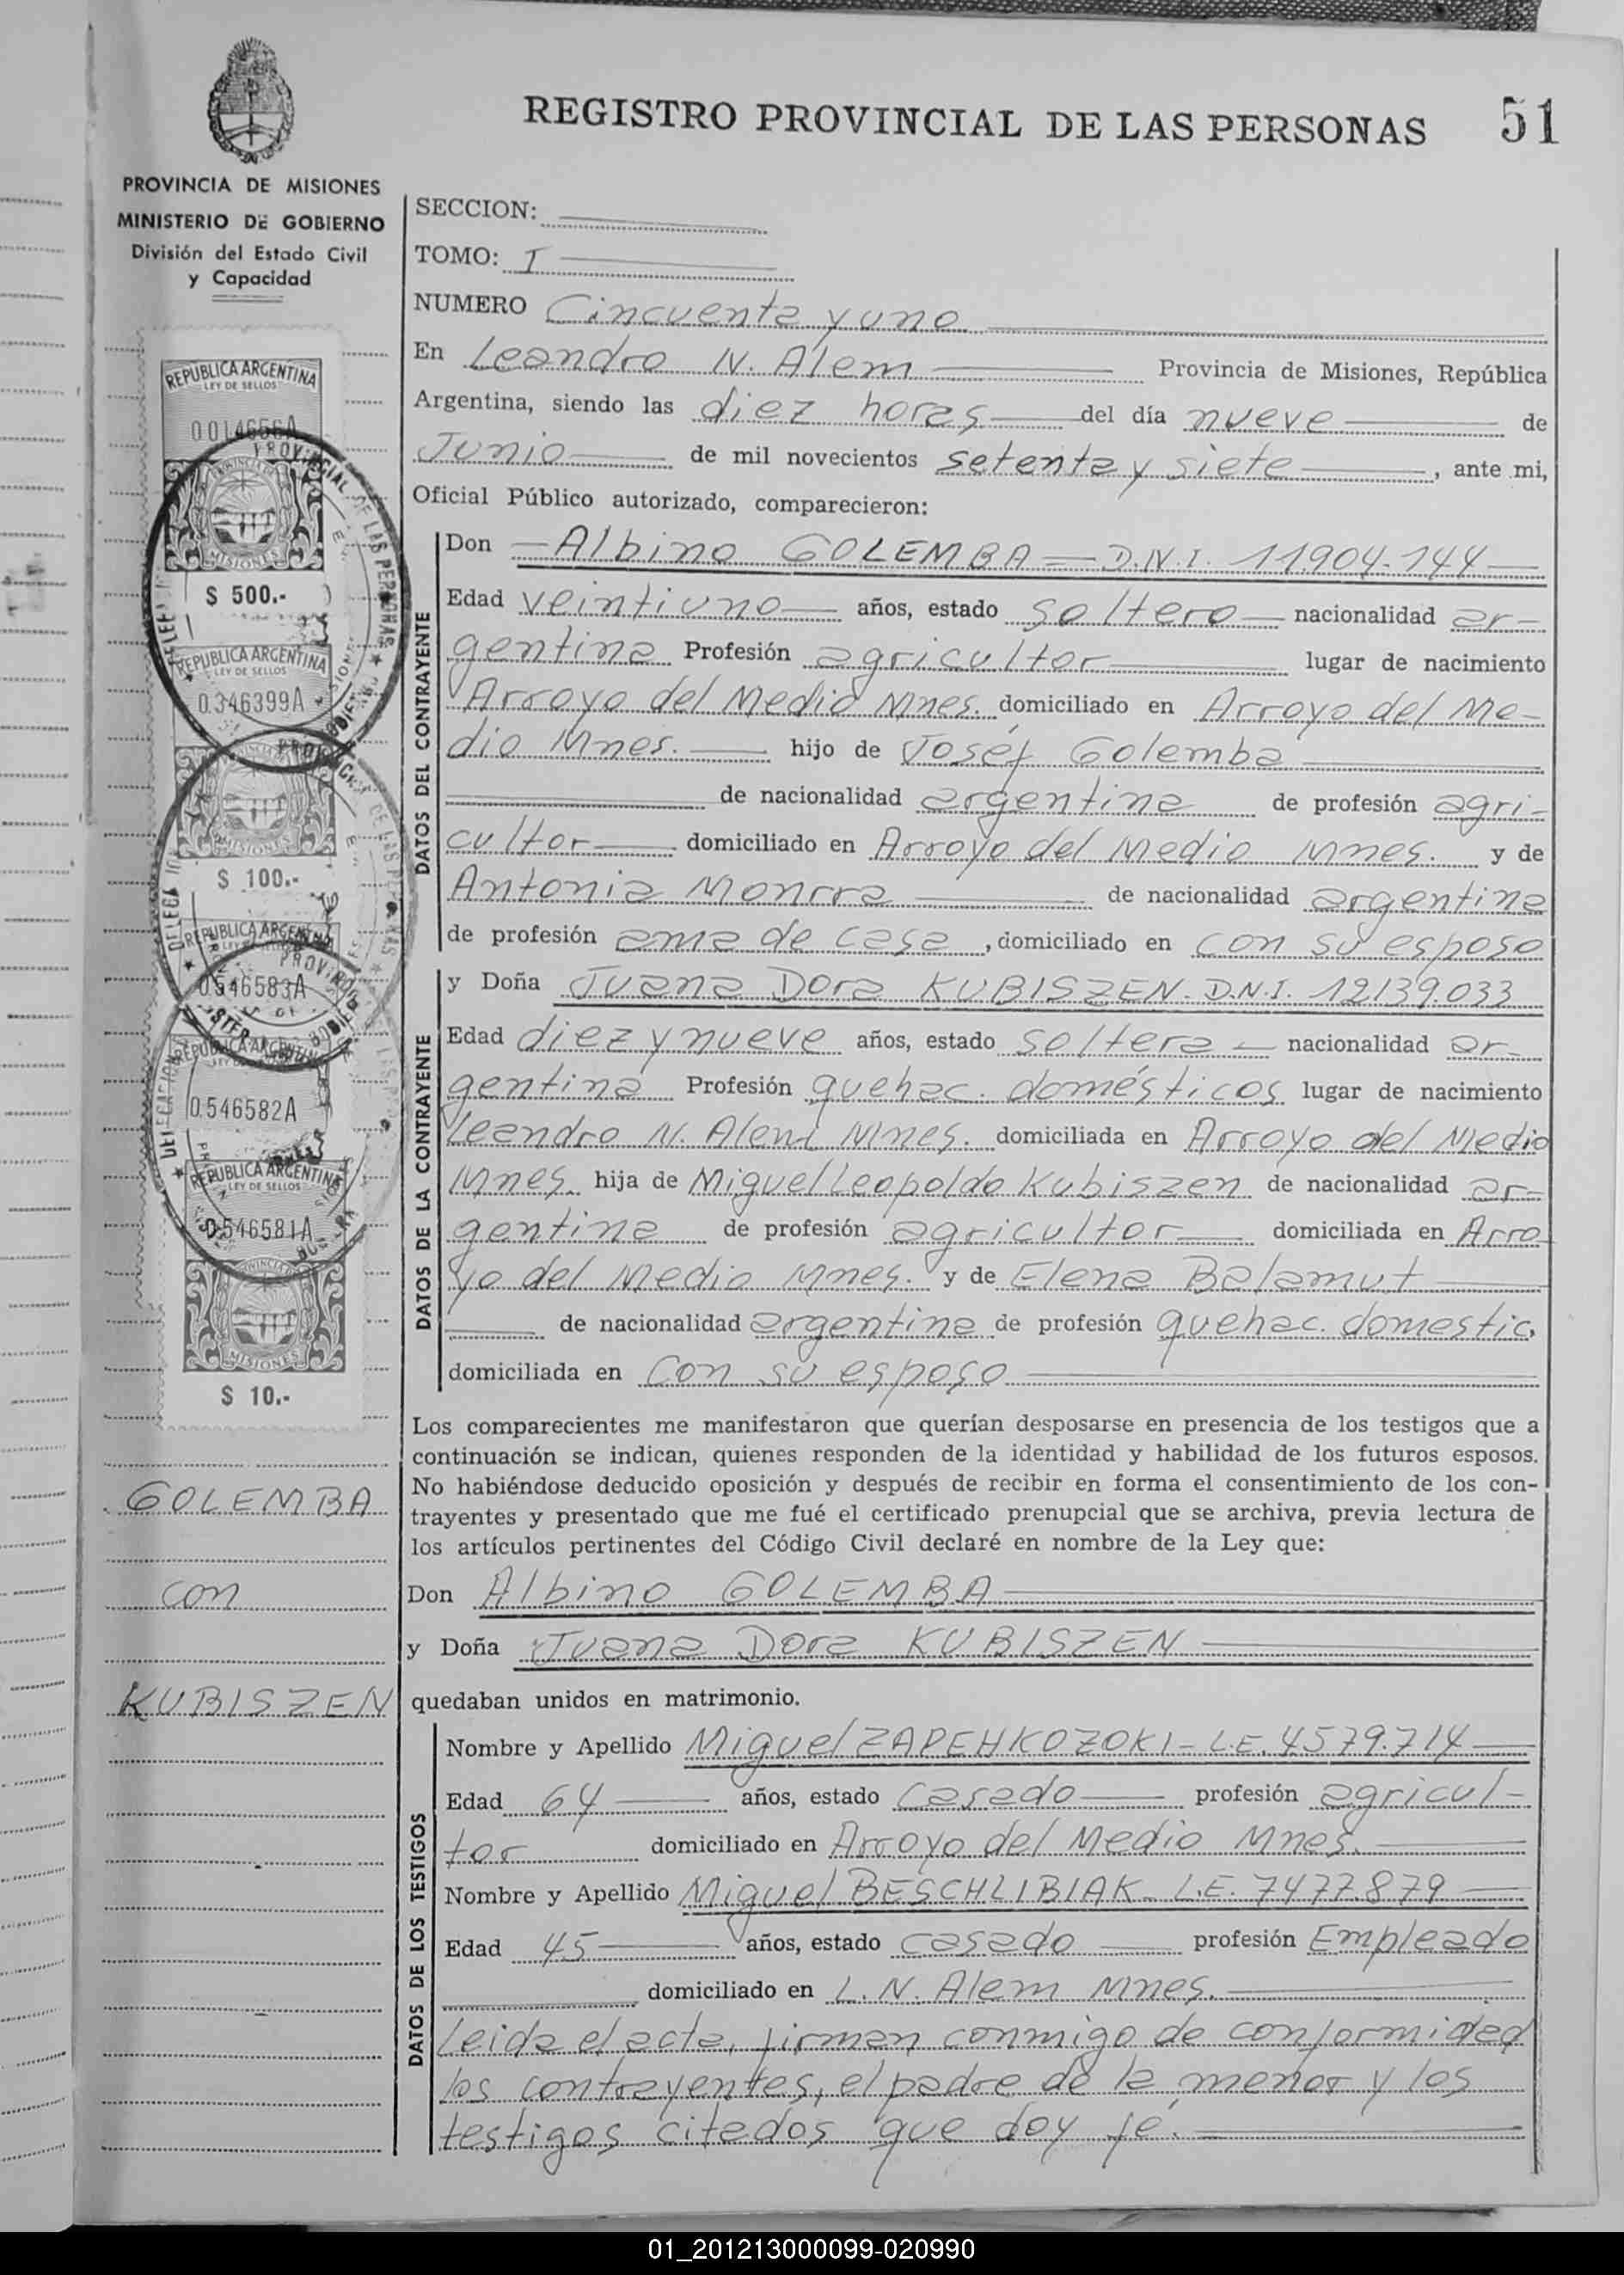 REGISTRO PROVINCIAL DE LAS PERSONAS 51
PROVINCIA DE MISIONES
MINISTERIO DE GOBIERNO
División del Estado Civil
y Capacidad
SECCION:
TOMO: I
NUMERO Cincuenta y uno
En Leandro N. Alem Provincia de Misiones, República
Argentina, siendo las diez horas del día nueve de
Junio de mil novecientos setenta y siete, ante mi,
Oficial Público autorizado, comparecieron:
DATOS DEL CONTRAYENTE
Don Albino GOLEMBA = D.N.I. 11.904.144
Edad veintiuno años, estado soltero nacionalidad ar-
gentina Profesión agricultor lugar de nacimiento
Arroyo del Medio Mnes. domiciliado en Arroyo del Me-
dio Mnes. hijo de Joséf Golemba
de nacionalidad argentina de profesión agri-
cultor domiciliado en Arroyo del Medio Mnes. y de
Antonia Monrra de nacionalidad argentina
de profesión ama de casa, domiciliado en con su esposo
DATOS DE LA CONTRAYENTE
y Doña Juana Dora KUBISZEN - D.N.I. 12139.033
Edad diez y nueve años, estado soltera nacionalidad ar-
gentina Profesión quehac. domésticos lugar de nacimiento
Leandro N. Alem Mnes. domiciliada en Arroyo del Medio
Mnes. hija de Miguel Leopoldo Kubiszen de nacionalidad ar-
gentina de profesión agricultor domiciliada en Arro
yo del Medio Mnes. y de Elena Balamut
de nacionalidad argentina de profesión quehac. domestic.
domiciliada en Con su esposo
Los comparecientes me manifestaron que querían desposarse en presencia de los testigos que a
continuación se indican, quienes responden de la identidad y habilidad de los futuros esposos.
No habiéndose deducido oposición y después de recibir en forma el consentimiento de los con-
trayentes y presentado que me fué el certificado prenupcial que se archiva, previa lectura de
los artículos pertinentes del Código Civil declaré en nombre de la Ley que:
Don Albino GOLEMBA
y Doña Juana Dora KUBISZEN
quedaban unidos en matrimonio.
DATOS DE LOS TESTIGOS
Nombre y Apellido Miguel ZAPEHKOZOKI - L.E. 4579.714
Edad 64 años, estado casado profesión agricul-
tor domiciliado en Arroyo del Medio Mnes.
Nombre y Apellido Miguel BESCHLIBIAK - L.E. 7477.879
Edad 45 años, estado casado profesión Empleado
domiciliado en L. N. Alem Mnes.
Leida el acta, firman conmigo de conformidad
los contrayentes, el padre de la menor y los
testigos citados que doy fé.
REPUBLICA ARGENTINA
LEY DE SELLOS
0014656A
MISIONES
$ 500.-
REPUBLICA ARGENTINA
LEY DE SELLOS
0.346399A
MISIONES
$ 100.-
REPUBLICA ARGENTINA
0546583A
REPUBLICA ARGENTINA
0.546582A
REPUBLICA ARGENTINA
LEY DE SELLOS
0546581A
MISIONES
$ 10.-
GOLEMBA
con
KUBISZEN
01_201213000099-020990